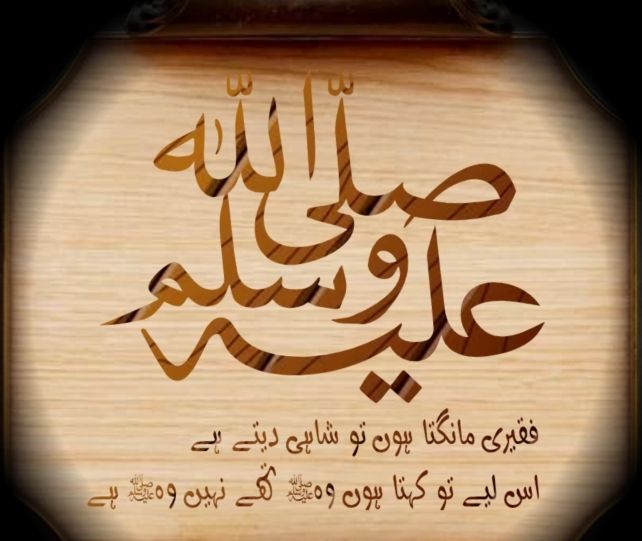 صلى الله عليه وسلم
فقیری مانگتا ہوں تو شاہی دیتے ہے
اس لیے تو کہتا ہوں وہ ﷺ تھے نہیں وہ ﷺ ہے